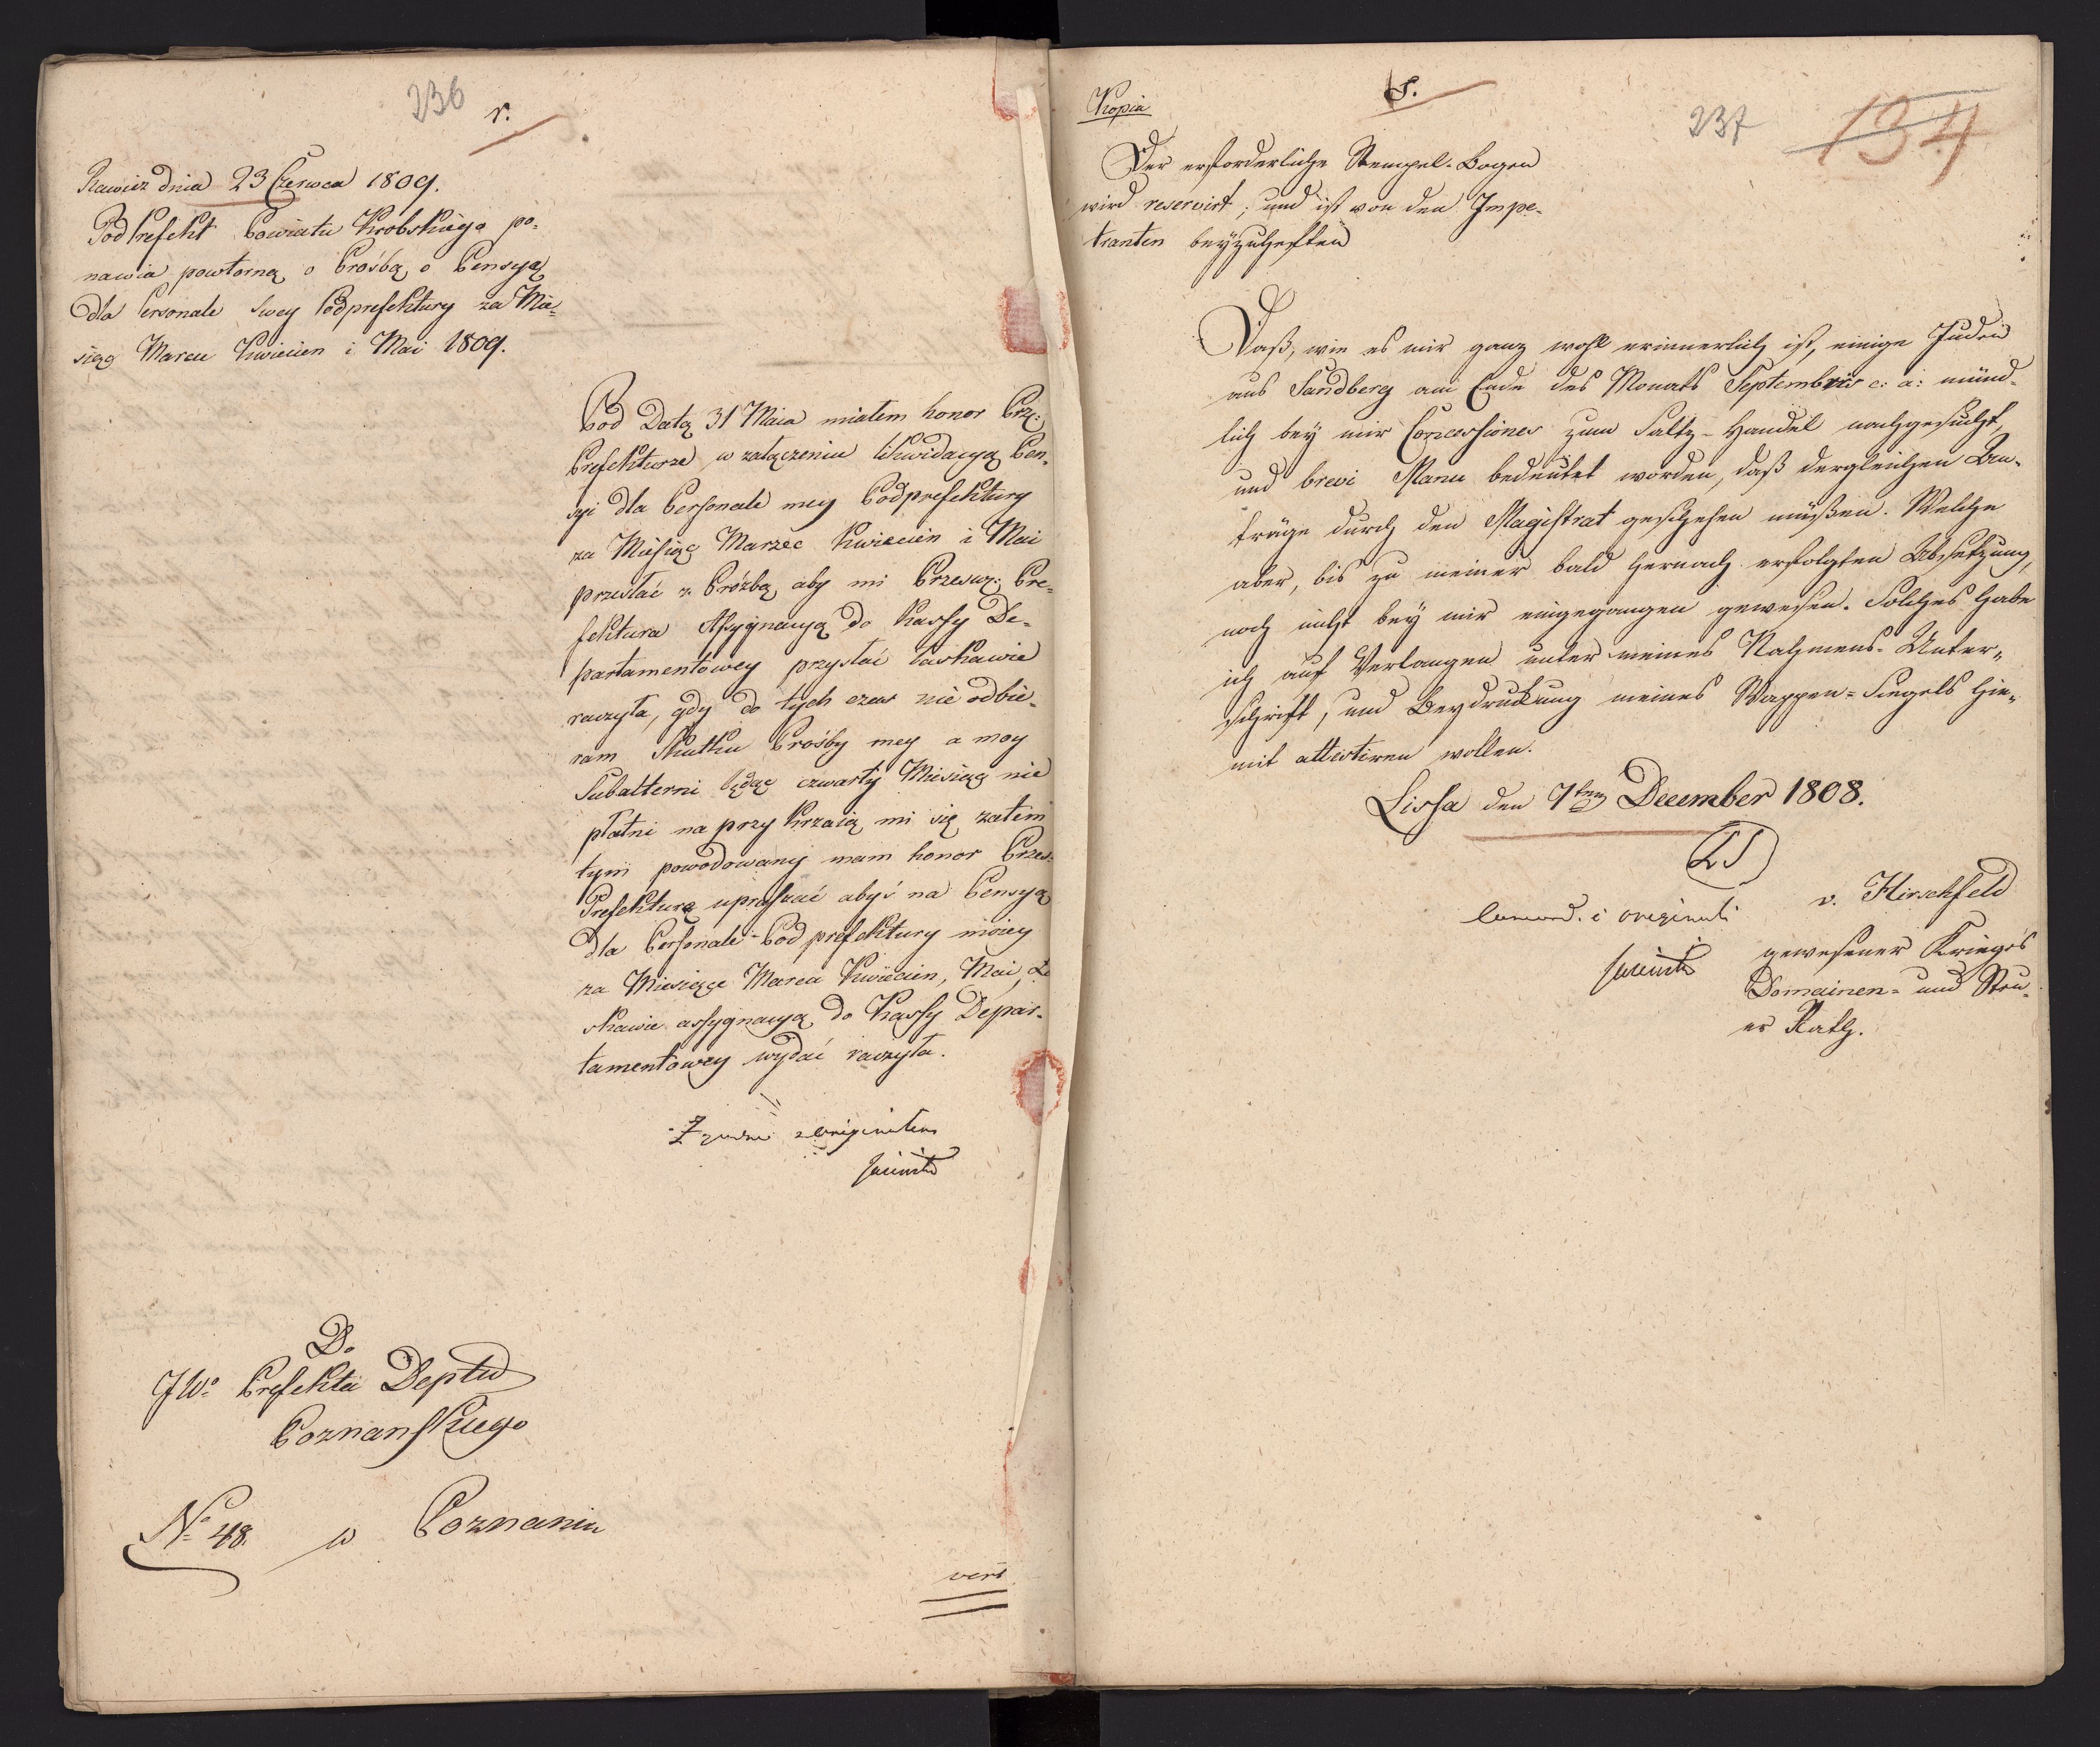 236
r.
Rawicz dnia 23 Czerwca 1809.
Podprefekt Powiatu Krobskiego po-
nawia powtorną o Prośbą o Pensyą
dla Personale swey Podprefektury za Mie-
siąc Marca Kwiecien i Mai 1809.
Pod Datą 31 Maia miałem honor Prze:
Prefekturze w załączeniu likwidacyą Pen-
syi dla Personale mey Podprefektury
za Miesiąc Marzec Kwiecien i Mai
przesłać z Prośbą aby mi Przesw: Pre-
fektura Assygnacyą do Kassy De-
partamentowey przysłać łaskawie
raczyła, gdy do tych czas nie odbie-
ram Skutku Prośby mey a moy
Subalterni będąc czwarty Miesiąc nie
płatni na przy krzaią mi się zatem
tym powodowany mam honor Przes:
Prefekturę upraszać abyś na Pensyą
dla Personale Pod prefektury moiey
za Miesiące Marca Kwiecien, Mai, Ła
skawie assygnacyą do Kassy Depar-
tamentowey wydać raczyła.
Zgodno z Originałem
Do
JWo Prefekta Deptu
Poznanskiego
No 48. w Poznaniu
vert
Kopia
S.
237
134
Der erforderliche Stempel-Bogen
wird reservirt, und ist von den Impe-
tranten beyzuheften
Daß, wie es mir ganz wohl erinnerlich ist, einige Juden
aus Sandberg am Ende des Monats Septembris c: a: münd-
lich bey mir Concessiones zum Saltz-Handel nachgesucht,
und brevi Manu bedeutet worden, daß dergleichen An-
träge durch den Magistrat geschehen müßen. Welche
aber, bis zu meiner bald hernach erfolgten Absetzung,
noch nicht bey mir eingegangen gewesen. Solches habe
ich auf Verlangen unter meines Nahmens-Unter-
schrift, und Beydruckung meines Wappen-Siegels hie-
mit attestiren wollen.
Lissa den 7ten December 1808.
LS
v. Hirschfeld
gewesener Krieges
Domainen- und Steu-
er Rath.